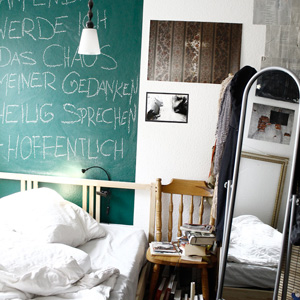 WERDE ICH
DAS CHAOS
MEINER GEDANKEN
HEILIG SPRECHEN
- HOFFENTLICH